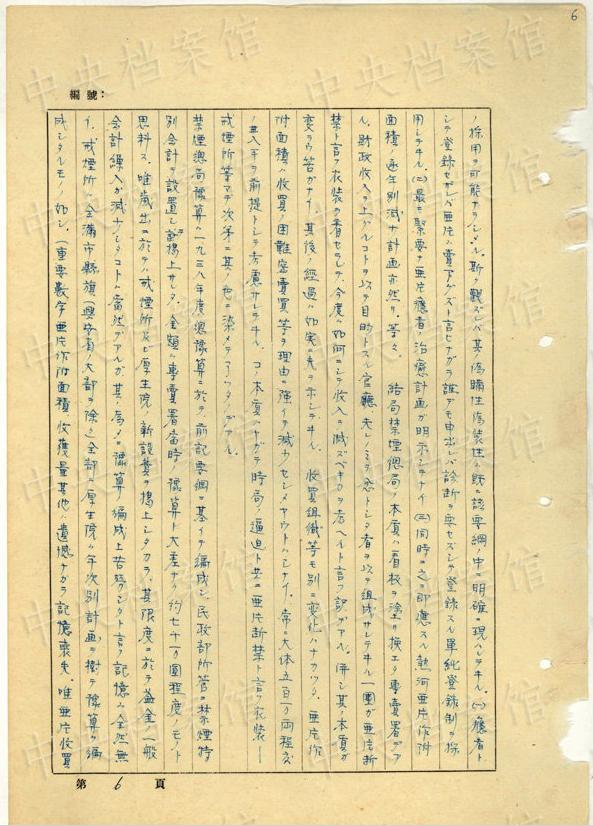 6
編號:
ノ採用ヲ可能ナラシム. 斯ク観ズレバ其ノ偽瞞性偽装性ハ既ニ該要綱ノ中ニ明確ニ現ハレテヰル. (一)癮者ト
シテ登録セザレバ亜片ハ賣アゲズト言ヒナガラ誰デモ申出レバ診断ヲ要セズシテ登録スル単純登録制ヲ採
用シテヰル. (二)最モ緊要ナ亜片癮者ノ治癒計画ガ明示シテナイ (三)同時ニ之ニ即應スル熱河亜片作附
面積ノ逐年別減ナ計画亦然リ. 等々. 結局禁煙總局ノ本質ハ看板ヲ塗リ換エタ專賣署デア
ル. 財政収入ヲ上ゲルコトヲ以テ目的トスル官廳 夫レノミヲ念トシタ者ヲ以テ組成サレテヰル一團ガ亜片断
禁ト言フ衣装ヲ着セラレテ, 今度ハ如何ニシテ収入ヲ減ズベキカヲ考ヘルト言フ訳デアル. 併シ其ノ本質ガ
変ラウ筈ガナイ. 其後ノ経過ハ如実ニ之ヲ示シテヰル. 收買組織等モ別ニ変化ハナカッタ. 亜片作
附面積ハ收買ノ困難密賣買等ヲ理由ニ強イテ減少セシメヤウトハシナイ. 常ニ大体五百万両程度
ノ入手ヲ前提トシテ考慮サレテヰル. コノ本質ハヤガテ時局ノ逼迫ト共ニ亜片断禁ト言フ衣装ー
戒煙所等マデ次第ニ其ノ色ニ染メテアッタノデアル.
禁煙總局豫算ハ一九三八年度總豫算ニ於テ前記要綱ニ基イテ編成シ, 民政部所管ニ禁煙特
別会計ヲ設置シ計上サレタ. 金額ハ專賣署当時ノ豫算ト大差ナク約七千万圓程度ノモノト
思料ス. 唯歳出ニ於テハ戒煙所及ビ厚生院ノ新設費ヲ揭上シタカラ, 其限度ニ於テ益金ノ一般
会計繰入ガ減少シタコトハ當然デアルガ, 其ノ為メニ豫算編成上苦勞シタト言フ記憶ハ全然無
イ. 戒煙所ハ全満市縣旗(興安省ノ大部ヲ除ク)全部ニ, 厚生院ハ年次別計画ヲ樹テ豫算ヲ編
成シタルモノノ如シ. (重要数字亜片作附面積, 收穫量其他ハ遺憾ナガラ記憶喪失. 唯亜片收買
第 6 頁
中央档案馆